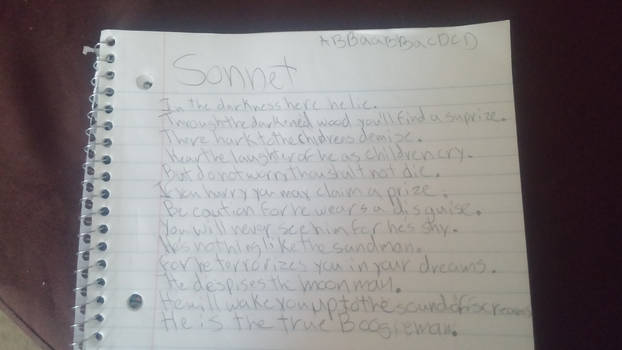 ABBaaBBacDcD
Sonnet
In the darkness here he lie.
Through the darkened wood you'll find a suprize.
There hark to the childrens demise.
Hear the laughter of he as children cry.
But do not worry thou shalt not die.
If you hurry you may claim a prize.
Be caution for he wears a disguise.
You will never see him for he's shy.
He's nothing like the sandman.
For he terrorizes you in your dreams.
He despises the moon man.
He will wake you up to the sound of screams
He is the true Boogieman.